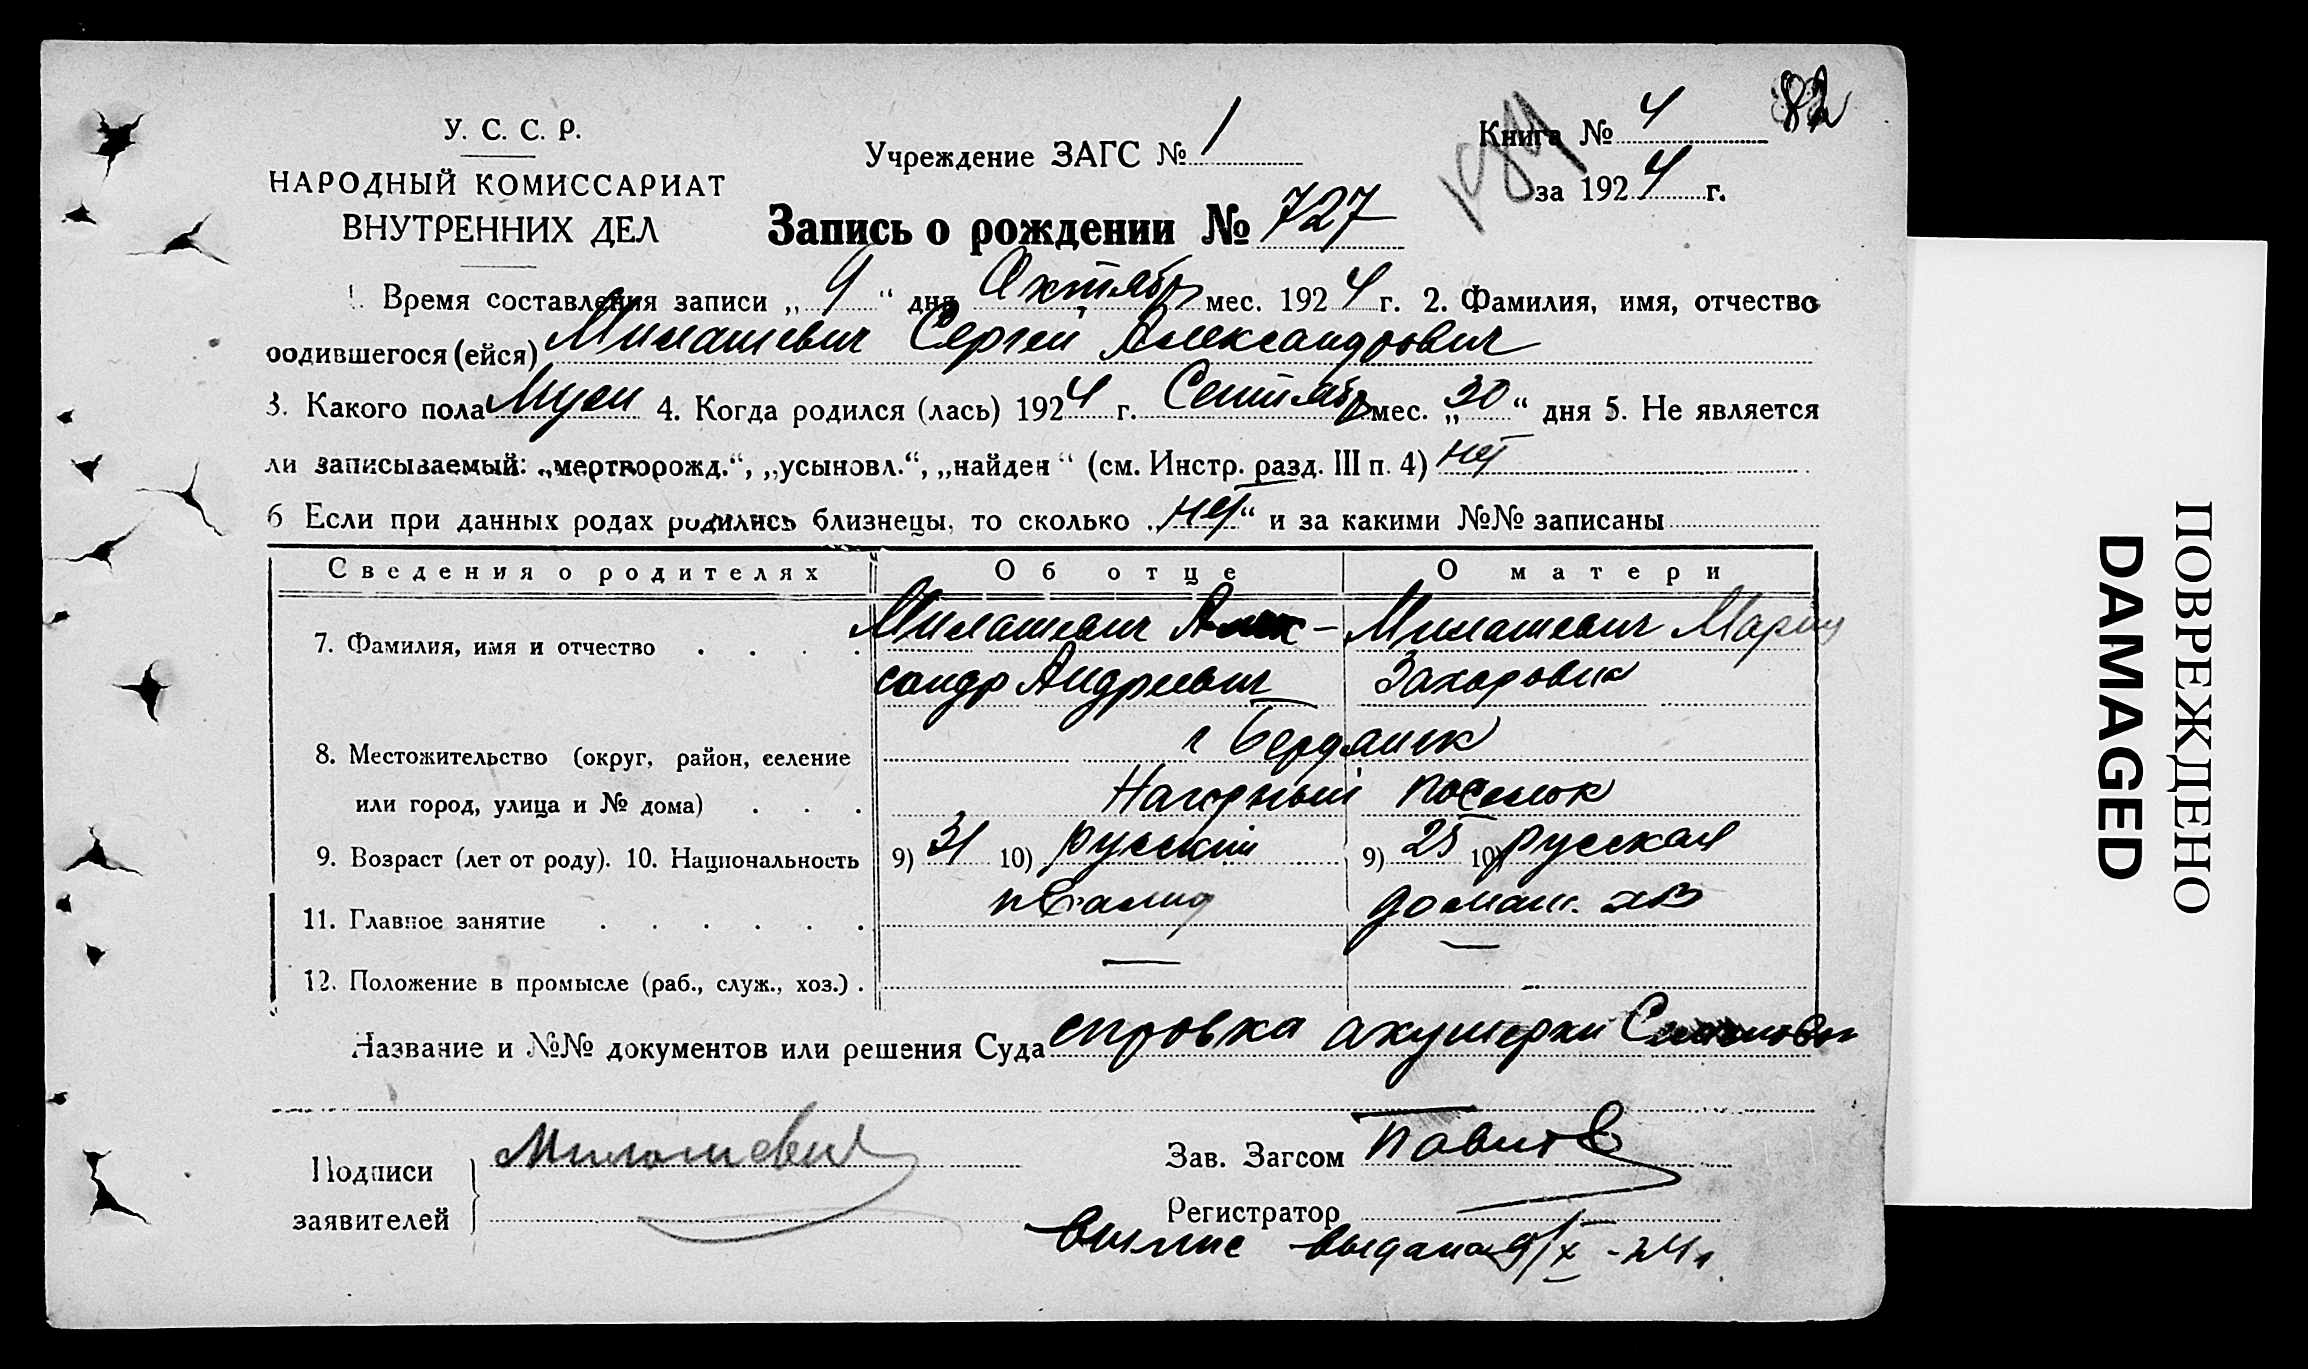 82
У. С. С. Р.
НАРОДНЫЙ КОМИССАРИАТ
ВНУТРЕННИХ ДЕЛ
Учреждение ЗАГС № 1
Книга № 4
за 1924 г.
Запись о рождении № 727
1. Время составления записи „9“ дня Октябр мес. 1924 г. 2. Фамилия, имя, отчество
родившегося (ейся) Милашевич Сергей Александрович
3. Какого пола Муж 4. Когда родился (лась) 1924 г. Сентябр мес. „30“ дня 5. Не является
ли записываемый: „мертворожд.“, „усыновл.“, „найден“ (см. Инстр. разд. III п. 4) нет
6 Если при данных родах родились близнецы, то сколько „нет“ и за какими №№ записаны
Сведения о родителях Об отце О матери
7. Фамилия, имя и отчество . . . . Милашевич Алек- Милашевич Мария
сандр Андреевич Захаровна
8. Местожительство (округ, район, селение г Бердянск
или город, улица и № дома) . . . Нагорный поселок
9. Возраст (лет от роду). 10. Национальность 9) 31 10) русский 9) 25 10) русская
11. Главное занятие . . . . . . домаш. хоз
12. Положение в промысле (раб., служ., хоз.) . — —
Название и №№ документов или решения Суда справка акушерки
Подписи
заявителей
Милошевич
Зав. Загсом
Регистратор
выпис выдана 9/X - 24 г.
ПОВРЕЖДЕНО
DAMAGED